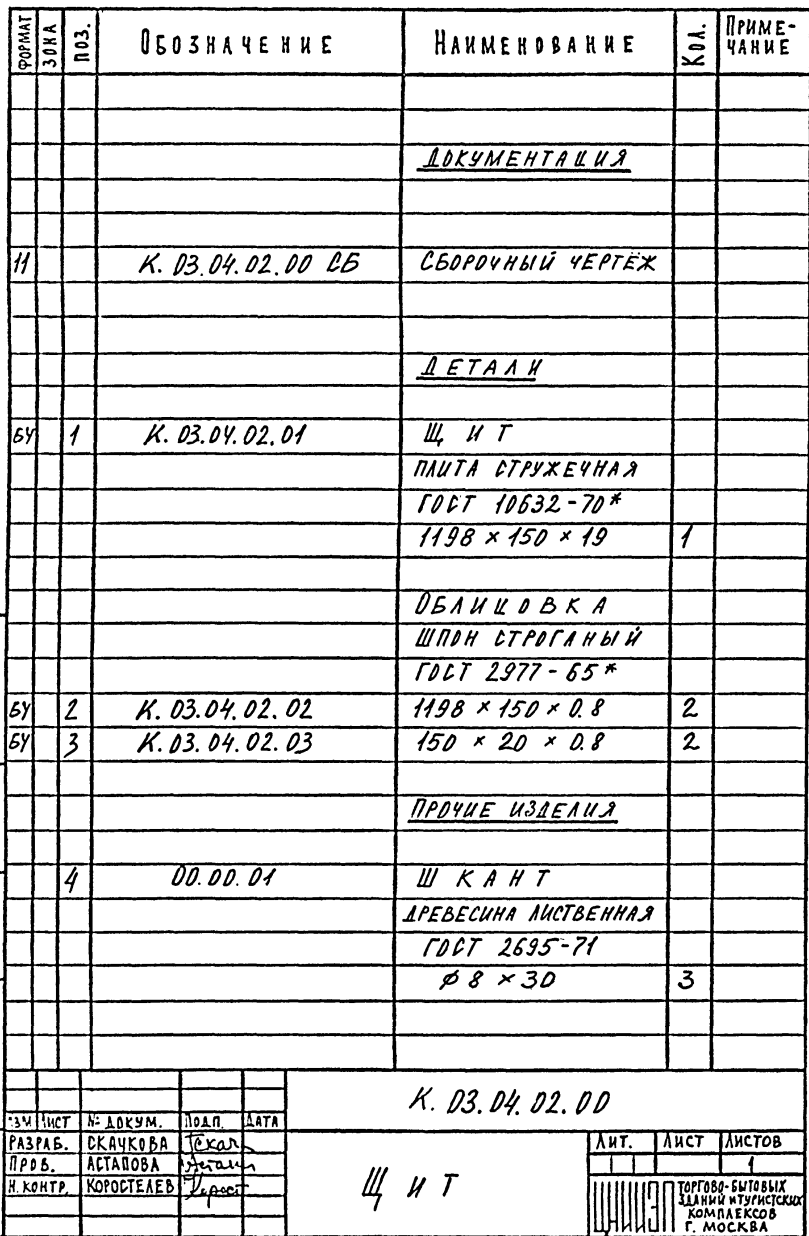 ФОРМАТ ЗОНА ПОЗ. ОБОЗНАЧЕНИЕ НАИМЕНОВАНИЕ КОЛ. ПРИМЕ-
ЧАНИЕ
ДОКУМЕНТАЦИЯ
11 К.03.04.02.00 СБ СБОРОЧНЫЙ ЧЕРТЁЖ
ДЕТАЛИ
БЧ 1 К.03.04.02.01 ЩИТ
ПЛИТА СТРУЖЕЧНАЯ
ГОСТ 10632-70*
1198 × 150 × 19 1
ОБЛИЦОВКА
ШПОН СТРОГАНЫЙ
ГОСТ 2977-65*
БЧ 2 К.03.04.02.02 1198 × 150 × 0.8 2
БЧ 3 К.03.04.02.03 150 × 20 × 0.8 2
ПРОЧИЕ ИЗДЕЛИЯ
4 00.00.01 ШКАНТ
ДРЕВЕСИНА ЛИСТВЕННАЯ
ГОСТ 2695-71
ϕ 8 × 30 3
К.03.04.02.00
ИЗМ ЛИСТ № ДОКУМ. ПОДП. ДАТА
РАЗРАБ. СКАЧКОВА
ПРОВ. АСТАПОВА
Н. КОНТР. КОРОСТЕЛЕВ
ЩИТ
ЛИТ. ЛИСТ ЛИСТОВ
1
ЦНИИЭП
ТОРГОВО-БЫТОВЫХ
ЗДАНИЙ И ТУРИСТСКИХ
КОМПЛЕКСОВ
Г. МОСКВА